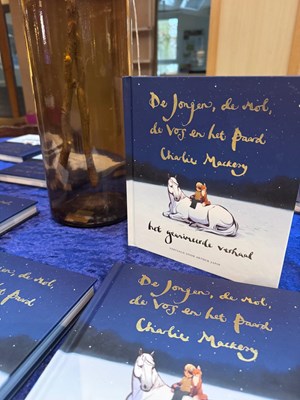 De Jongen, de mol,
de Vos en het Paard
Charlie Mackesy
het geanimeerde verhaal
De Jongen, de mol,
de Vos en het Paard
Charlie Mackesy